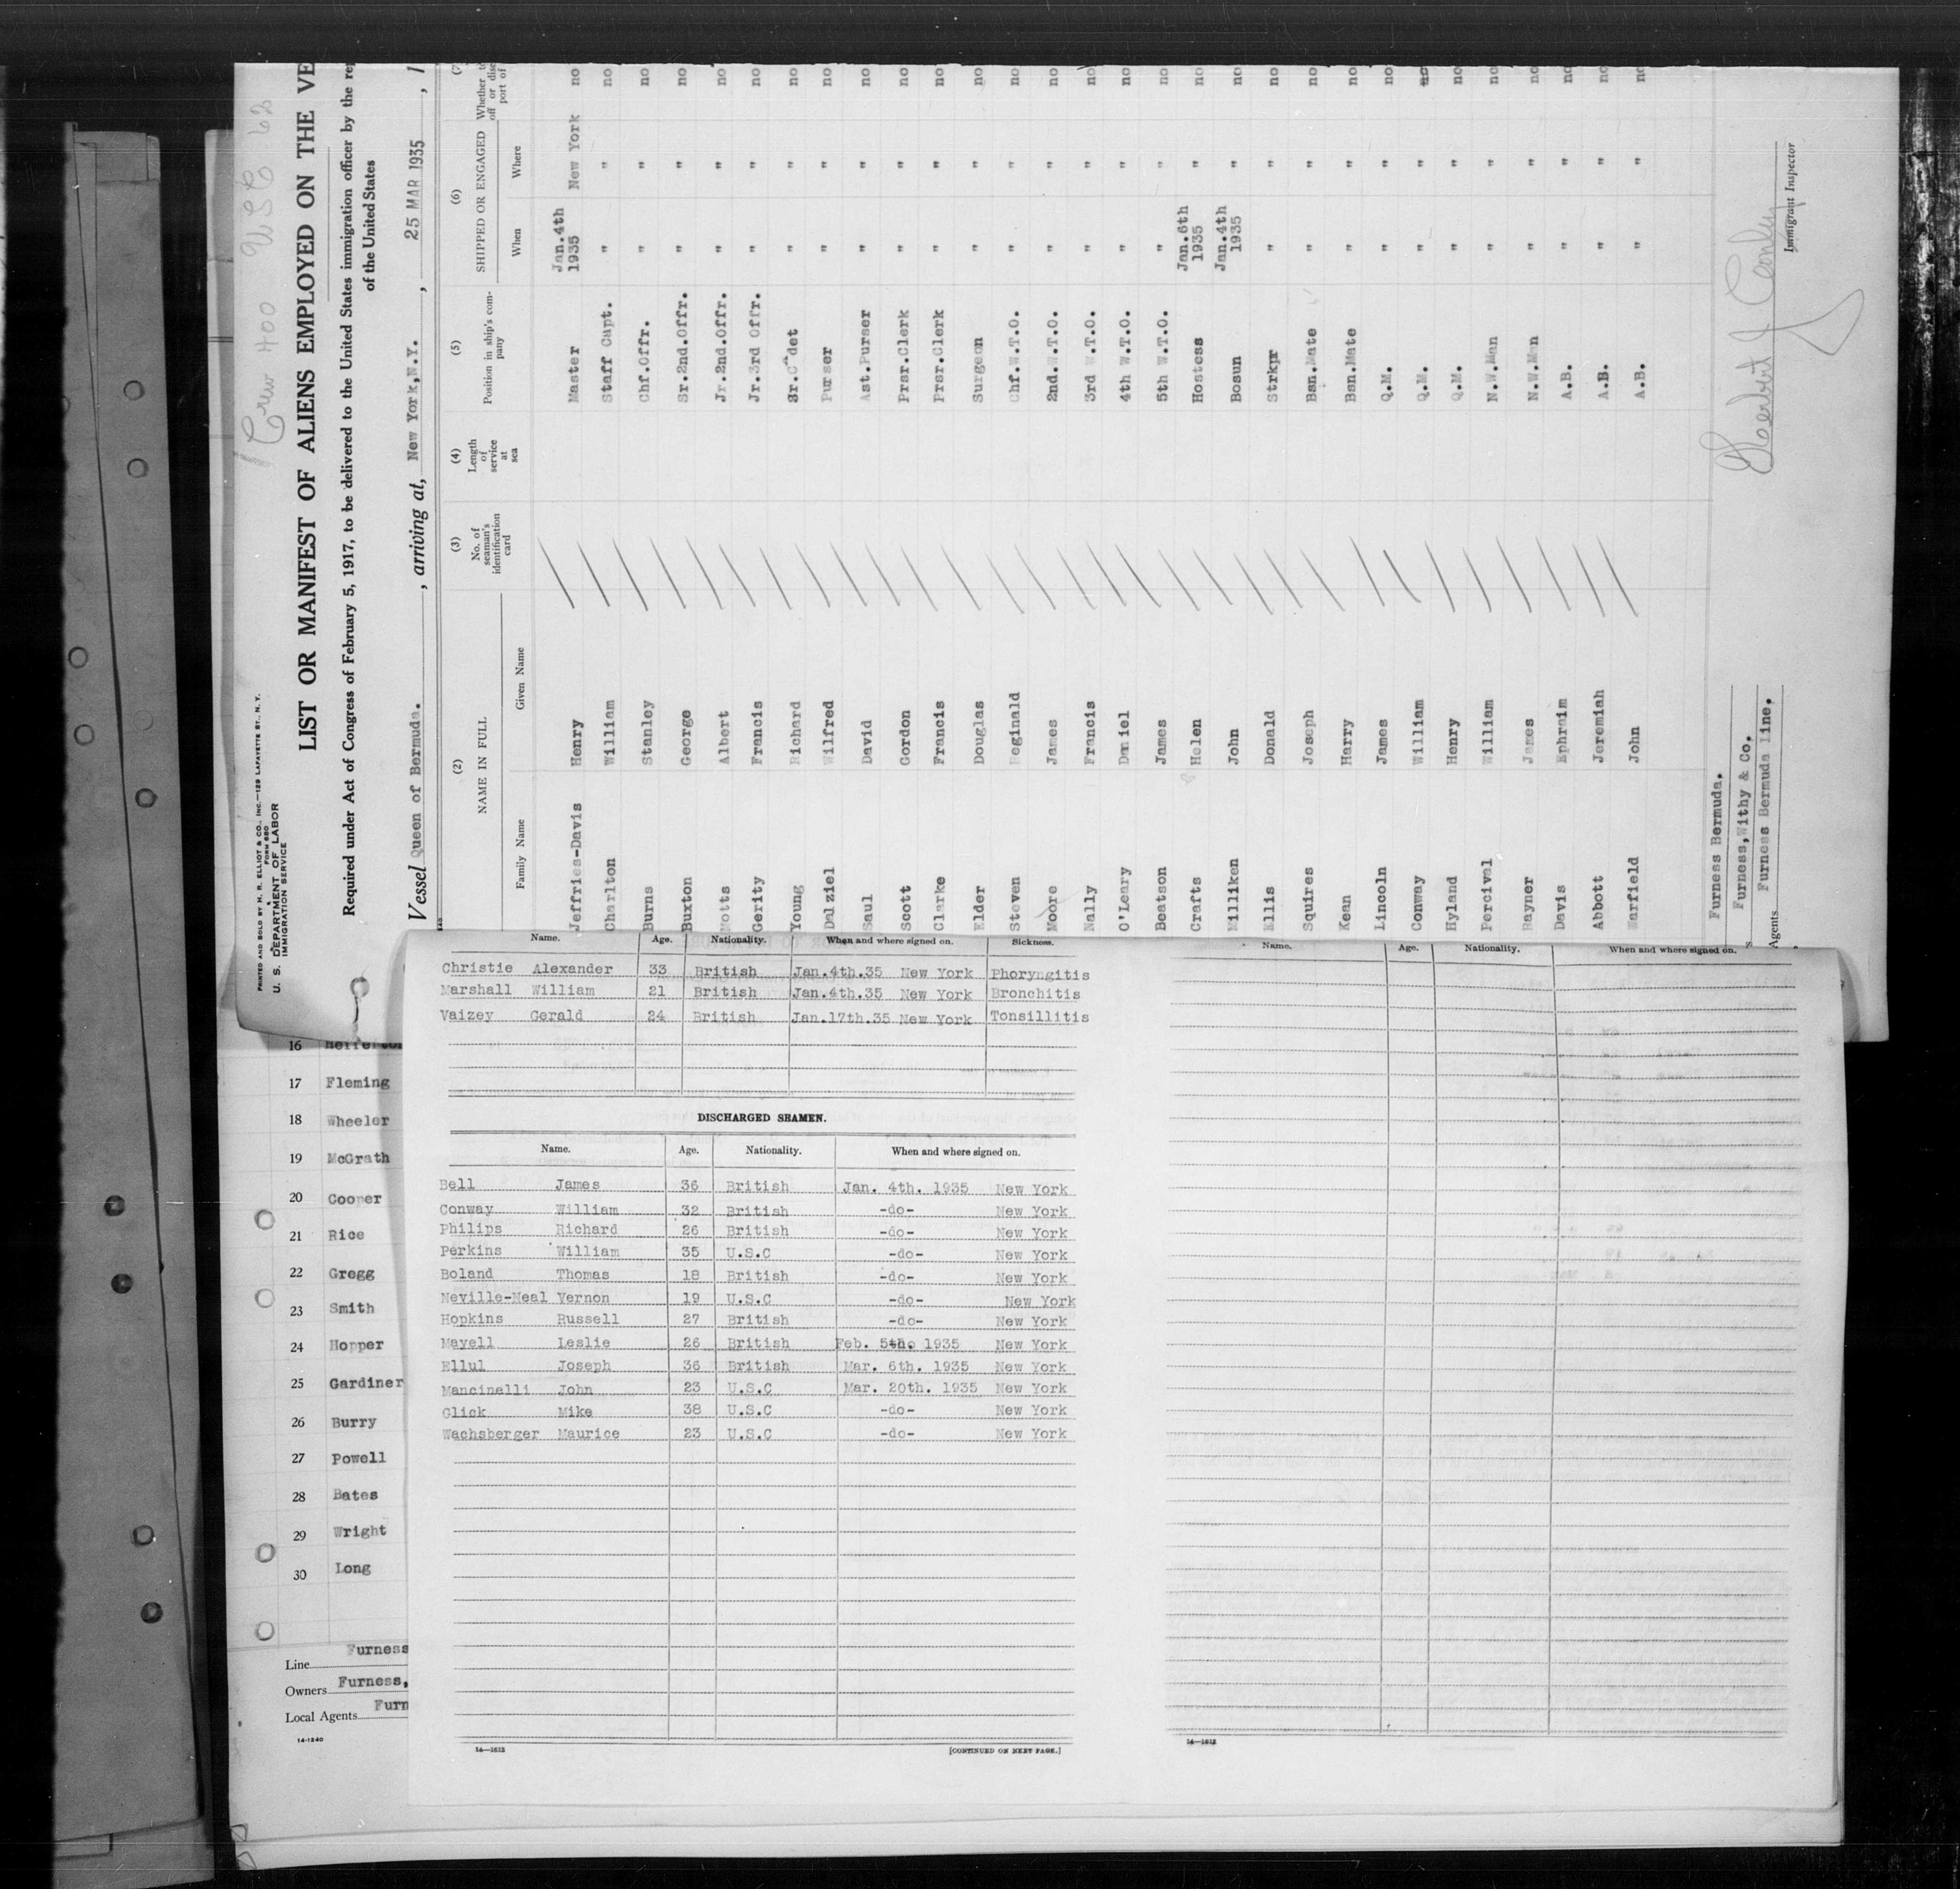 Crew 400 USC 62
PRINTED AND SOLD BY H. R. ELLIOT & CO., INC.—129 LAFAYETTE ST., N. Y.
FORM 680
U. S. DEPARTMENT OF LABOR
IMMIGRATION SERVICE
LIST OR MANIFEST OF ALIENS EMPLOYED ON THE VE
Required under Act of Congress of February 5, 1917, to be delivered to the United States immigration officer by the rep
of the United States
Vessel Queen of Bermuda. , arriving at, New York,N.Y. , 25 MAR 1935 , 1
(2) (3) (4) (5) (6) (7)
NAME IN FULL No. of seaman's identification card Length of service at sea Position in ship's company SHIPPED OR ENGAGED Whether to off or disc port of
Family Name Given Name When Where
Jeffries-Davis Henry Master Jan.4th 1935 New York no
Charlton William Staff Capt. " " no
Burns Stanley Chf.Offr. " " no
Buxton George Sr.2nd.Offr. " " no
Motts Albert Jr.2nd.Offr. " " no
Gerity Francis Jr.3rd Offr. " " no
Young Richard Sr.Cadet " " no
Dalziel Wilfred Purser " " no
Saul David Ast.Purser " " no
Scott Gordon Prsr.Clerk " " no
Clarke Francis Prsr.Clerk " " no
Elder Douglas Surgeon " " no
Steven Reginald Chf.W.T.O. " " no
Moore James 2nd.W.T.O. " " no
Nally Francis 3rd W.T.O. " " no
O'Leary Daniel 4th W.T.O. " " no
Beatson James 5th W.T.O. " " no
Crafts Helen Hostess Jan.6th 1935 " no
Milliken John Bosun Jan.4th 1935 " no
Ellis Donald Strkpr " " no
Squires Joseph Bsn.Mate " " no
Kean Harry Bsn.Mate " " no
Lincoln James Q.M. " " no
Conway William Q.M. " " no
Hyland Henry Q.M. " " no
Percival William N.W.Man " " no
Rayner James N.W.Man " " no
Davis Ephraim A.B. " " no
Abbott Jeremiah A.B. " " no
Warfield John A.B. " " no
Furness Bermuda.
Furness,Withy & Co.
Agents Furness Bermuda Line.
Immigrant Inspector
Name. Age. Nationality. When and where signed on. Sickness.
Christie Alexander 33 British Jan.4th.35 New York Phoryngitis
Marshall William 21 British Jan.4th.35 New York Bronchitis
Vaizey Gerald 24 British Jan.17th.35 New York Tonsillitis
DISCHARGED SEAMEN.
Name. Age. Nationality. When and where signed on.
Bell James 36 British Jan. 4th. 1935 New York
Conway William 32 British -do- New York
Philips Richard 26 British -do- New York
Perkins William 35 U.S.C -do- New York
Boland Thomas 18 British -do- New York
Neville-Neal Vernon 19 U.S.C -do- New York
Hopkins Russell 27 British -do- New York
Mayell Leslie 26 British Feb. 5th. 1935 New York
Ellul Joseph 36 British Mar. 6th. 1935 New York
Mancinelli John 23 U.S.C Mar. 20th. 1935 New York
Glick Mike 38 U.S.C -do- New York
Wachsberger Maurice 23 U.S.C -do- New York
14—1612
[CONTINUED ON NEXT PAGE.]
Name. Age. Nationality. When and where signed on.
14—1612
16
17 Fleming
18 Wheeler
19 McGrath
20 Cooper
21 Rice
22 Gregg
23 Smith
24 Hopper
25 Gardiner
26 Burry
27 Powell
28 Bates
29 Wright
30 Long
Line Furness
Owners Furness,
Local Agents Furn
14-1240